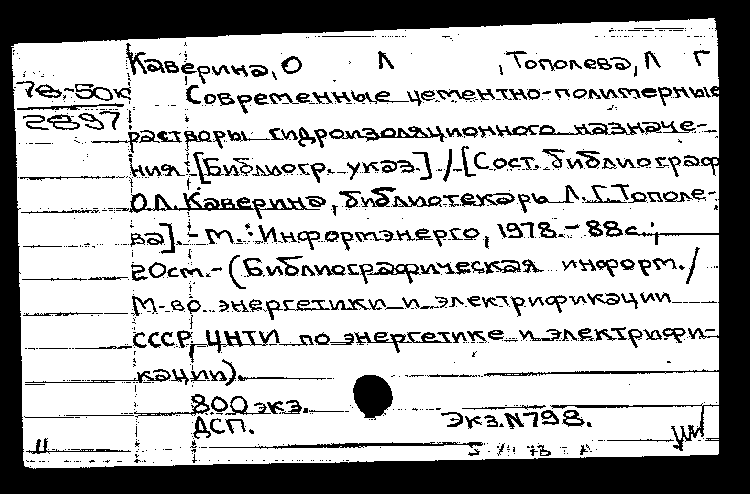 Каверина, О Л , Тополева, Л Г
78-50к
2897
Современные цементно-полимерные
растворы гидроизоляционного назначе-
ния [Библиогр. указ.] / [Сост. библиограф
О.Л. Каверина, библиотекарь Л.Г. Тополе-
ва]. – М.: Информэнерго, 1978. – 88с.;
20см. – (Библиографическая информ. /
М-во энергетики и электрификации
СССР, ЦНТИ по энергетике и электрифи-
кации).
800 экз.
ДСП. Экз. N798.
11